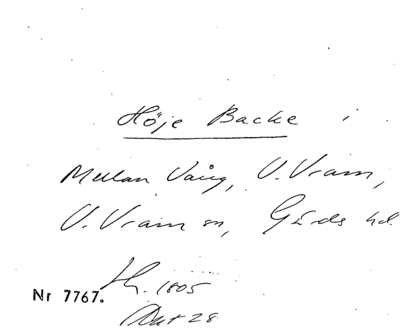 Höje Backe i
Mellan Vång, V. Vram,
V. Vram sn, Gärds hd.
Nr 7767. 1805
Akt 28